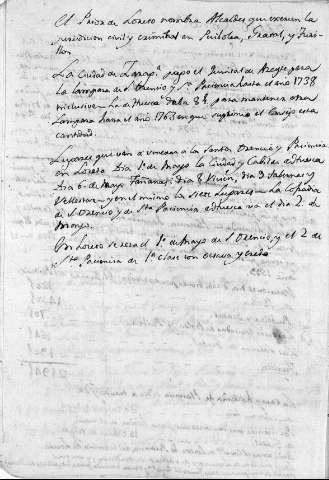 El Prior de Loreto nombra Alcaldes que exercen la
jurisdicion civil y criminal en
llon.
La Ciudad de Zarag.ª pagó el quintal de Azeyte para
la lampara de S.ⁿ Orencio y S.ᵗᵃ Paciencia hasta el año 1738
inclusive. La de Huesca daba para mantener otra
Lampara hasta el año 1763 en que suprimió el Consejo esta
cantidad.
Lugares que van a venerar a los Santos Orencio y Paciencia
en Loreto. Dia 1.º de Mayo la Ciudad y Cabildo de Huesca
Dia 6 de Mayo Tardienta, Dia 8 dia 9
y en el mismo los Siete Lugares. La Cofradia
de S. Orencio y de Sta Paciencia de Huesca va el dia 2. de
Mayo.
En Loreto se reza el 1.º de Mayo de S. Orencio, y el 2 de
Sta Paciencia de 1.ª clase con octava y credo